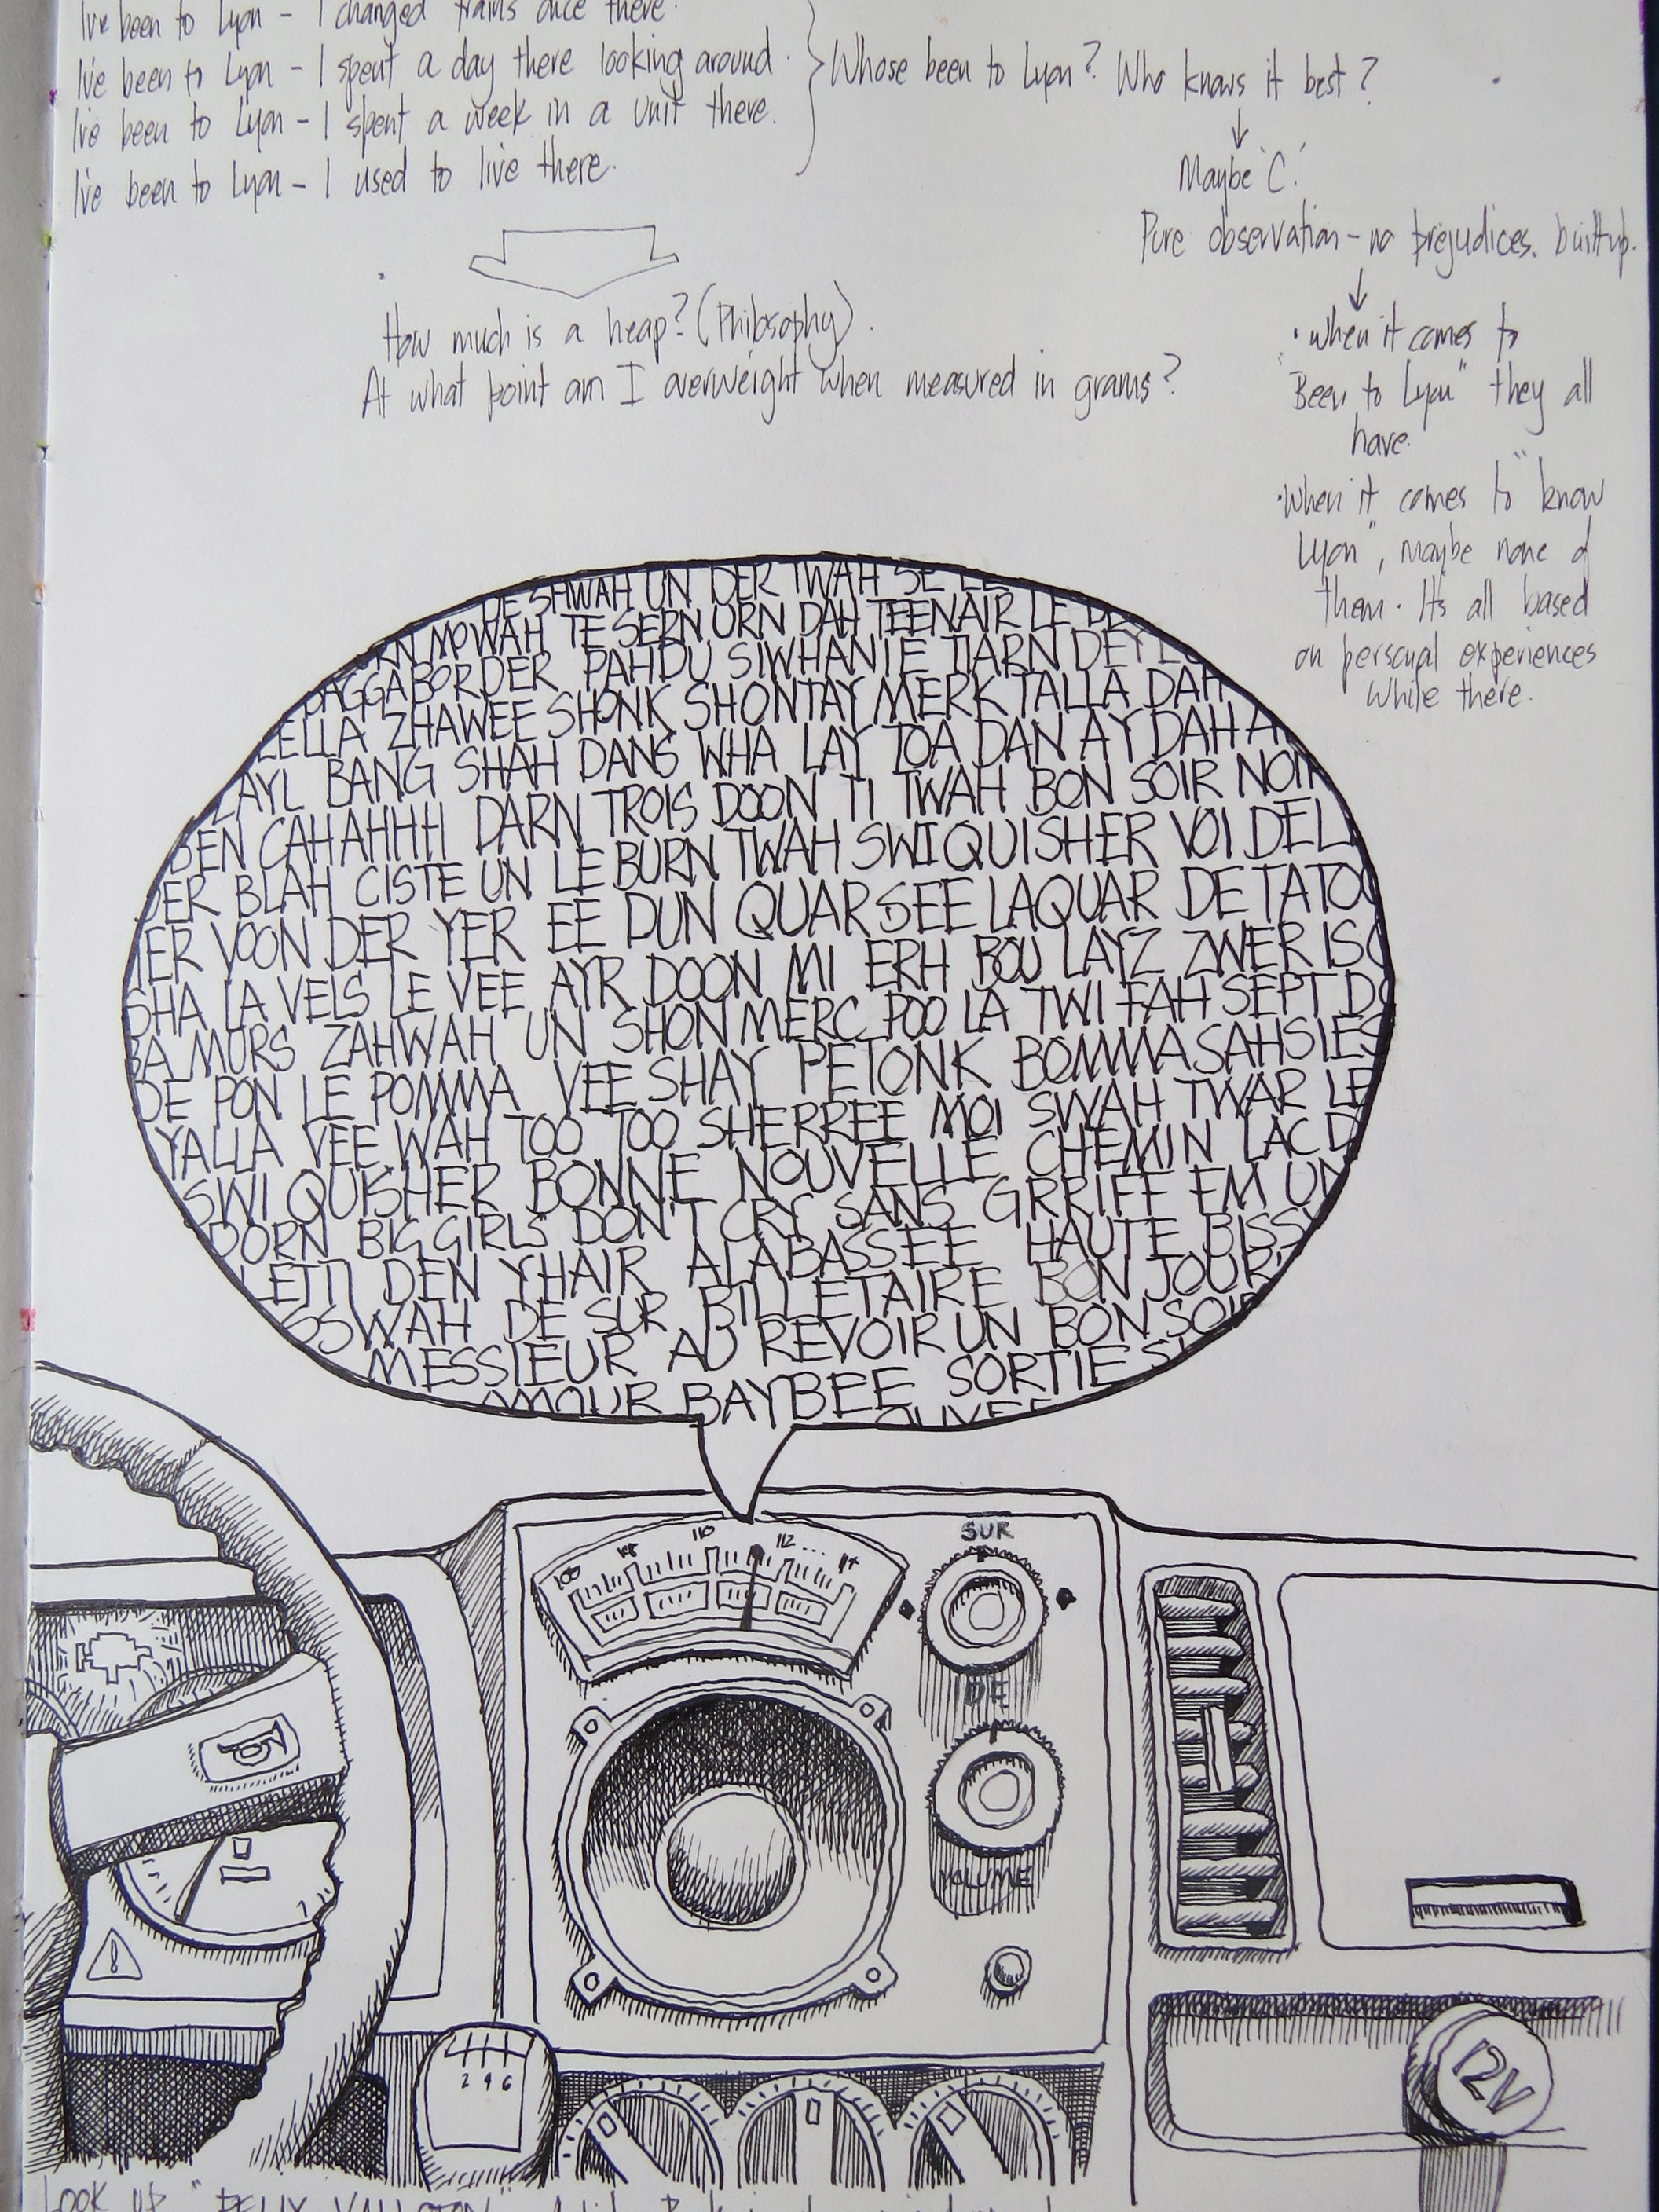 I've been to Lyon - I changed trains once there.
I've been to Lyon - I spent a day there looking around.
I've been to Lyon - I spent a week in a unit there.
I've been to Lyon - I used to live there.
Whose been to Lyon? Who knows it best?
Maybe 'C'.
Pure observation - no prejudices. built up.
• When it comes to
"Been to Lyon" they all
have.
• When it comes to "know
Lyon", maybe none of
them. It's all based
on personal experiences
while there.
How much is a heap? (Philosophy).
At what point am I overweight when measured in grams?
DE SHWAH UN DER TWAH SE LE
MOWAH TE SERN URN DAH TEENAIR LE
DAGGABORDER PAHDU SIWHANIE TIARN DEY
ELLA ZHAWEE SHONK SHONTAY MERK TALLA DAH
LAYL BANG SHAH DANS WHA LAY TOA DAN AY DAH A
BEN CAHAHHH DARN TROIS DOON TI TWAH BON SOIR NOIR
DER BLAH CISTE UN LE BURN TWAH SWI QUISHER VOI DEL
IER VOON DER YER EE DUN QUARSEE LAQUAR DE TATOU
SHA LA VELS LE VEE AYR DOON MI ERH BOU LAYZ ZWER ISO
BA MURS ZAHWAH UN SHON MERC POO LA TWI FAH SEPT DO
DE PON LE POMMA VEE SHAY PETONK BOMMASAHSIES
YALLA VEE WAH TOO TOO SHERREE MOI SWAH TWAR LE
SWI QUISHER BONNE NOUVELLE CHEMIN LAC D
DORN BIG GIRLS DON'T CRY SANS GRRIFF EM UN
LETTI DEN YHAIR ALABASSEE HAUTE BISSY
SSWAH DE SUR BILLETAIRE BON JOUR
MESSIEUR AU REVOIR UN BON SOIR
AMOUR BAYBEE SORTIE
OUVE
106 108 110 112 114
SUR
DE
VOLUME
!
2 4 6
12V
LOOK UP "FELIX VALLOTON"